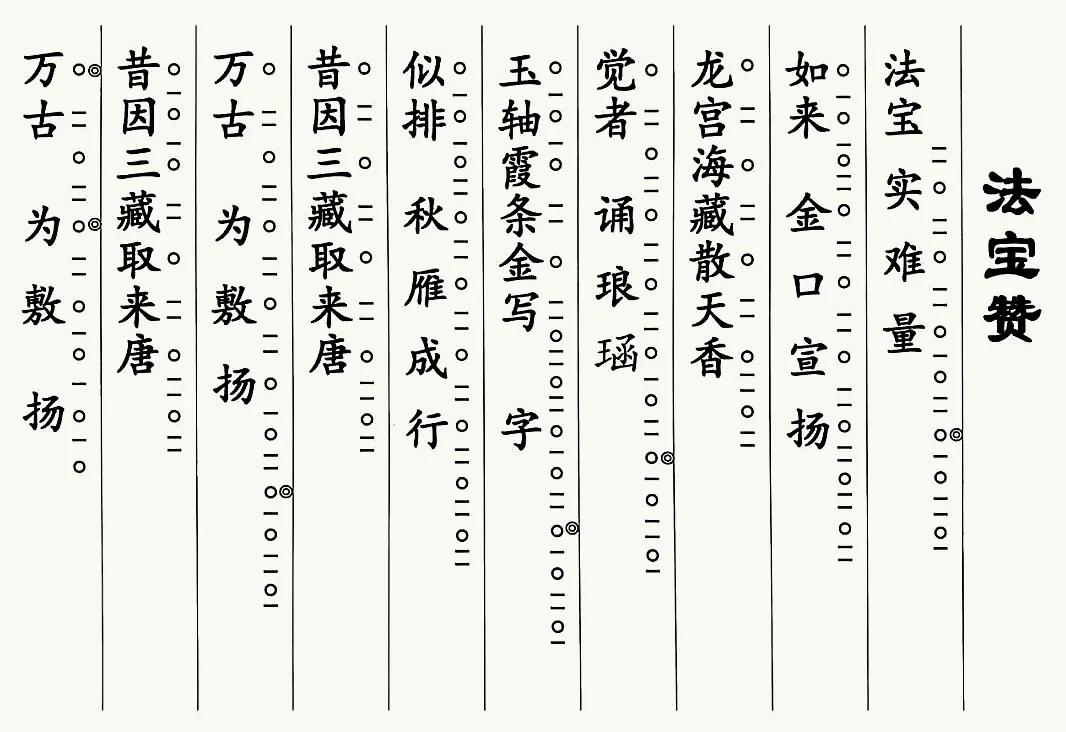 法宝赞
法宝实难量
如来金口宣扬
龙宫海藏散天香
觉者诵琅函
玉轴霞条金写字
似排秋雁成行
昔因三藏取来唐
万古为敷扬
昔因三藏取来唐
万古为敷扬